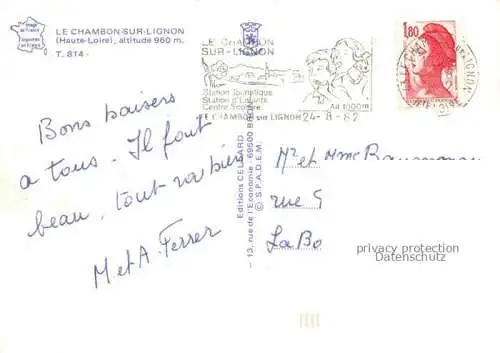 LE CHAMBON-SUR-LIGNON
(Haute-Loire), altitude 960 m.
T. 814 -
Image de France
LE CHAMBON
SUR-LIGNON
Station Touristique
Station d'Enfants
Centre Scolaire
Alt 1000m
LE CHAMBON sur LIGNON 24-8-82
1,80
Bons baisers
a tous. Il fait
beau, tout va bien
M et A. Ferrer
Editions CELLARD
- 13, rue de l'Economie - 69500 BRON
© S.P.A.D.E.M.
Mr et Mme
rue
La Bo
privacy protection